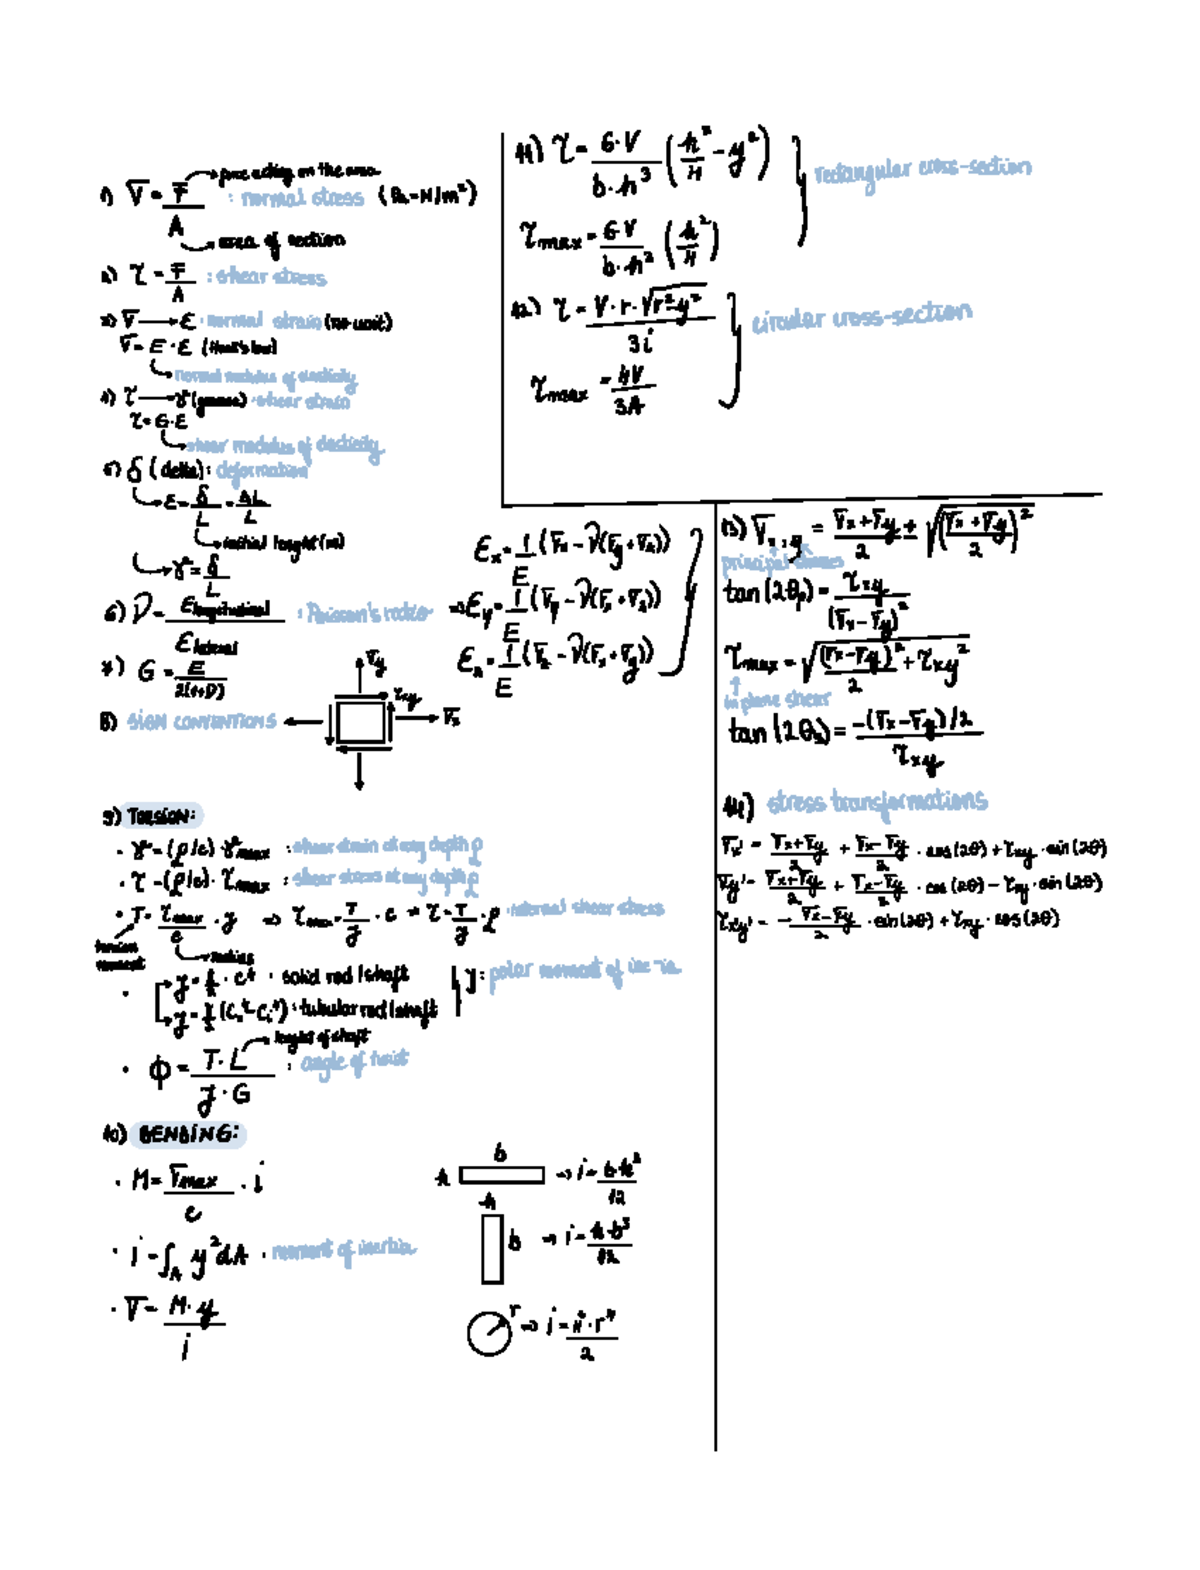 1) σ = F/A : normal stress (Pa = N/m²)
force acting on the area
area of section
2) τ = F/A : shear stress
3) σ → ε : normal strain (no unit)
σ = E · ε (Hook's law)
normal modulus of elasticity
4) τ → γ (gamma) : shear strain
τ = G · ε
shear modulus of elasticity
5) δ (delta) : deformation
ε = δ/L = ΔL/L
initial lenght (m)
γ = δ/L
6) ν = ε longitudinal / ε lateral : Poisson's ratio
εx = 1/E (σx - ν(σy + σz))
=> εy = 1/E (σy - ν(σx + σz))
εz = 1/E (σz - ν(σx + σy))
7) G = E / 2(1+ν)
8) SIGN CONVENTIONS
σy
τxy
σx
9) TORSION:
· γ = (ρ/c) · γmax : shear strain at any depth ρ
· τ = (ρ/c) · τmax : shear stress at any depth ρ
· T = τmax/c · J => τmax = T/J · c => τ = T/J · ρ : internal shear stress
torsion moment
radius
· J = π/2 · c⁴ : solid rod/shaft
J = π/2 (c₀⁴ - cᵢ⁴) : tubular rod/shaft
J : polar moment of
· ϕ = T · L / J · G : angle of twist
lenght of shaft
10) BENDING:
· M = σmax/c · i
· i = ∫A y² dA : moment of inertia
· σ = M · y / i
b
h => i = b·h³/12
h
b => i = h·b³/12
r => i = π · r⁴/2
11) τ = 6·V / b·h³ (h²/4 - y²)
rectangular cross-section
τmax = 6V / b·h³ (h²/4)
12) τ = V · r · √r² - y² / 3i
circular cross-section
τmax = 4V/3A
13) σx,y = σx + σy / 2 ± √((σx + σy)/2)²
principal stresses
tan(2θp) = τxy / (σx - σy)²
τmax = √(σx - σy)²/2 + τxy²
in plane shear
tan(2θs) = -(σx - σy)/2 / τxy
14) stress transformations
σx' = σx + σy / 2 + σx - σy / 2 · cos(2θ) + τxy · sin(2θ)
σy' = σx + σy / 2 + σx - σy / 2 · cos(2θ) - τxy · sin(2θ)
τx'y' = - σx - σy / 2 · sin(2θ) + τxy · cos(2θ)